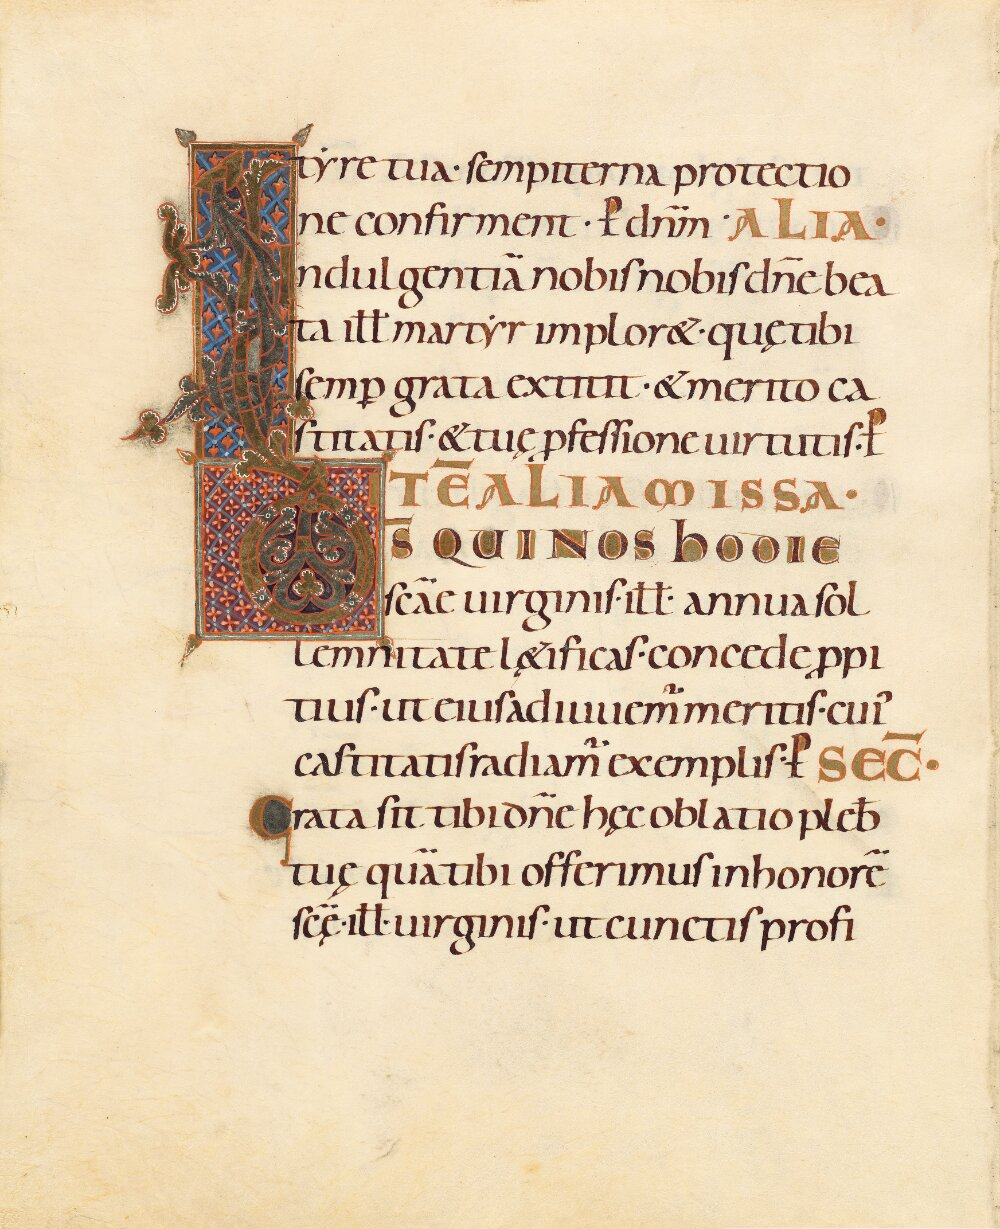 tyre tua· sempiterna protectio
ne confirment · P̄ dn̄m · ALIA·
Indulgentiā nobis nobis dn̄e bea
ta ill̄ martyr implor&· quę tibi
semp̱ grata extitit · & merito ca
stitatis· & tuę ꝓfessione uirtutis· P̄
ITĒ ALIA MISSA·
DS̄ QUI NOS hODIE
sc̄ae uirginis· ill̄· annua sol
lemnitate lę&ificas· concede ꝓpi
tius· ut eius adiuuem᷑ meritis· cui᷒
castitatis radiam᷑ exemplis· P̄ SEC̄·
Grata sit tibi dn̄e hęc oblatio pleb̄
tuę quā tibi offerimus in honorē
sc̄ę· ill̄· uirginis· ut cunctis profi